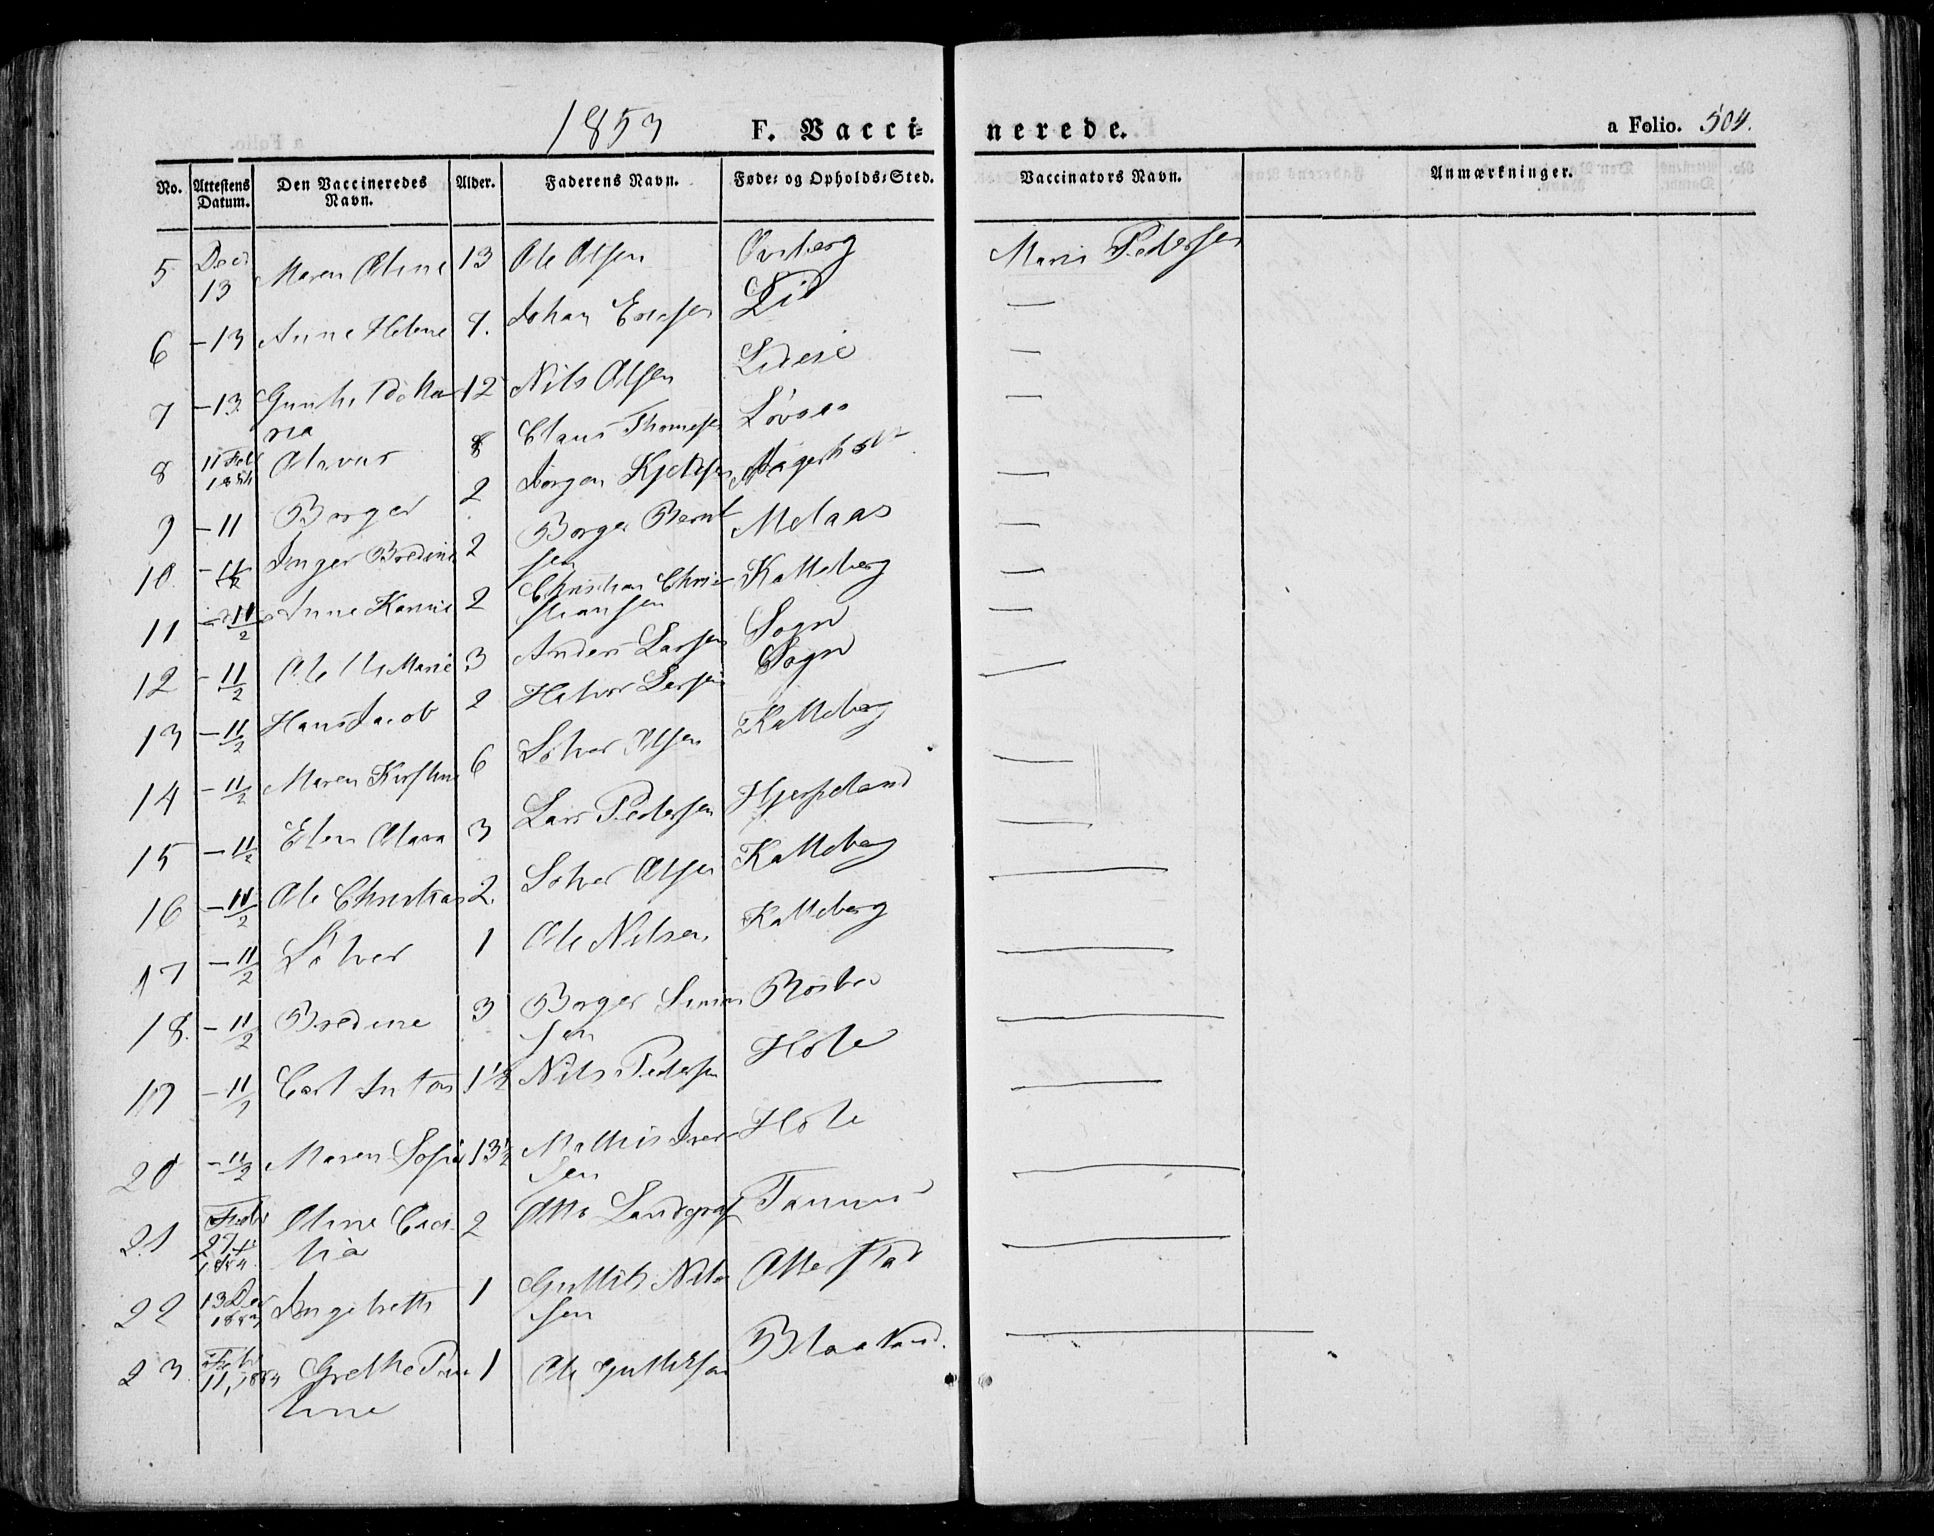 1853 F. Vaccinerede. a Folio. 504.
No. Attestens Datum. Den Vaccineredes Navn. Alder. Faderens Navn. Føde- og Opholds-Sted. Vaccinators Navn. Anmærkninger.
5 Dec 13 Maren Oline 13 Ole Olsen Maria Pedersen
6 – 13 Anne Helene 9. Johan Ericsen Lid —
7 – 13 12 Nils Olsen —
8 11 Feb 1854 Olavus 8 Claus Thomesen —
9 – 11 Borger 2 Jørgen Kjeldsen —
10 – 11/2 Inger Bredine 2 Borge Berntsen Melaas —
11 – 11/2 Anne Karine 2 Christian Christiansen Katteberg —
12 – 11/2 Marie 3 Anders Larsen Sogn —
13 – 11/2 Hans Jacob 2 Halvor Larsen Sogn —
14 – 11/2 Maren Kirstine 6 Solver Olsen Katteberg —
15 – 11/2 Elen Olava 3 Lars Pedersen Hjerpeland —
16 – 11/2 Ole Christian 2. Solver Olsen Katteberg —
17 – 11/2 Solver 1 Ole Nilsen Katteberg —
18. – 11/2 Bredine 3 Borger Simonsen —
19 – 11/2 Carl Anton 1 1/2 Nils Pedersen Hole —
20 – 11/2 Maren Sofie 13 1/2 Mathis Iversen Hole —
21 Feb 27 1854. Oline Cecilia 2 Otto Landgraf —
22 13 Dec 1853 Ingebreth 1 Guttik Nilssen Otterstad —
23 Feb 11, 1854 Grethe Pauline 1 Ole Guttiksen Blaaland. —